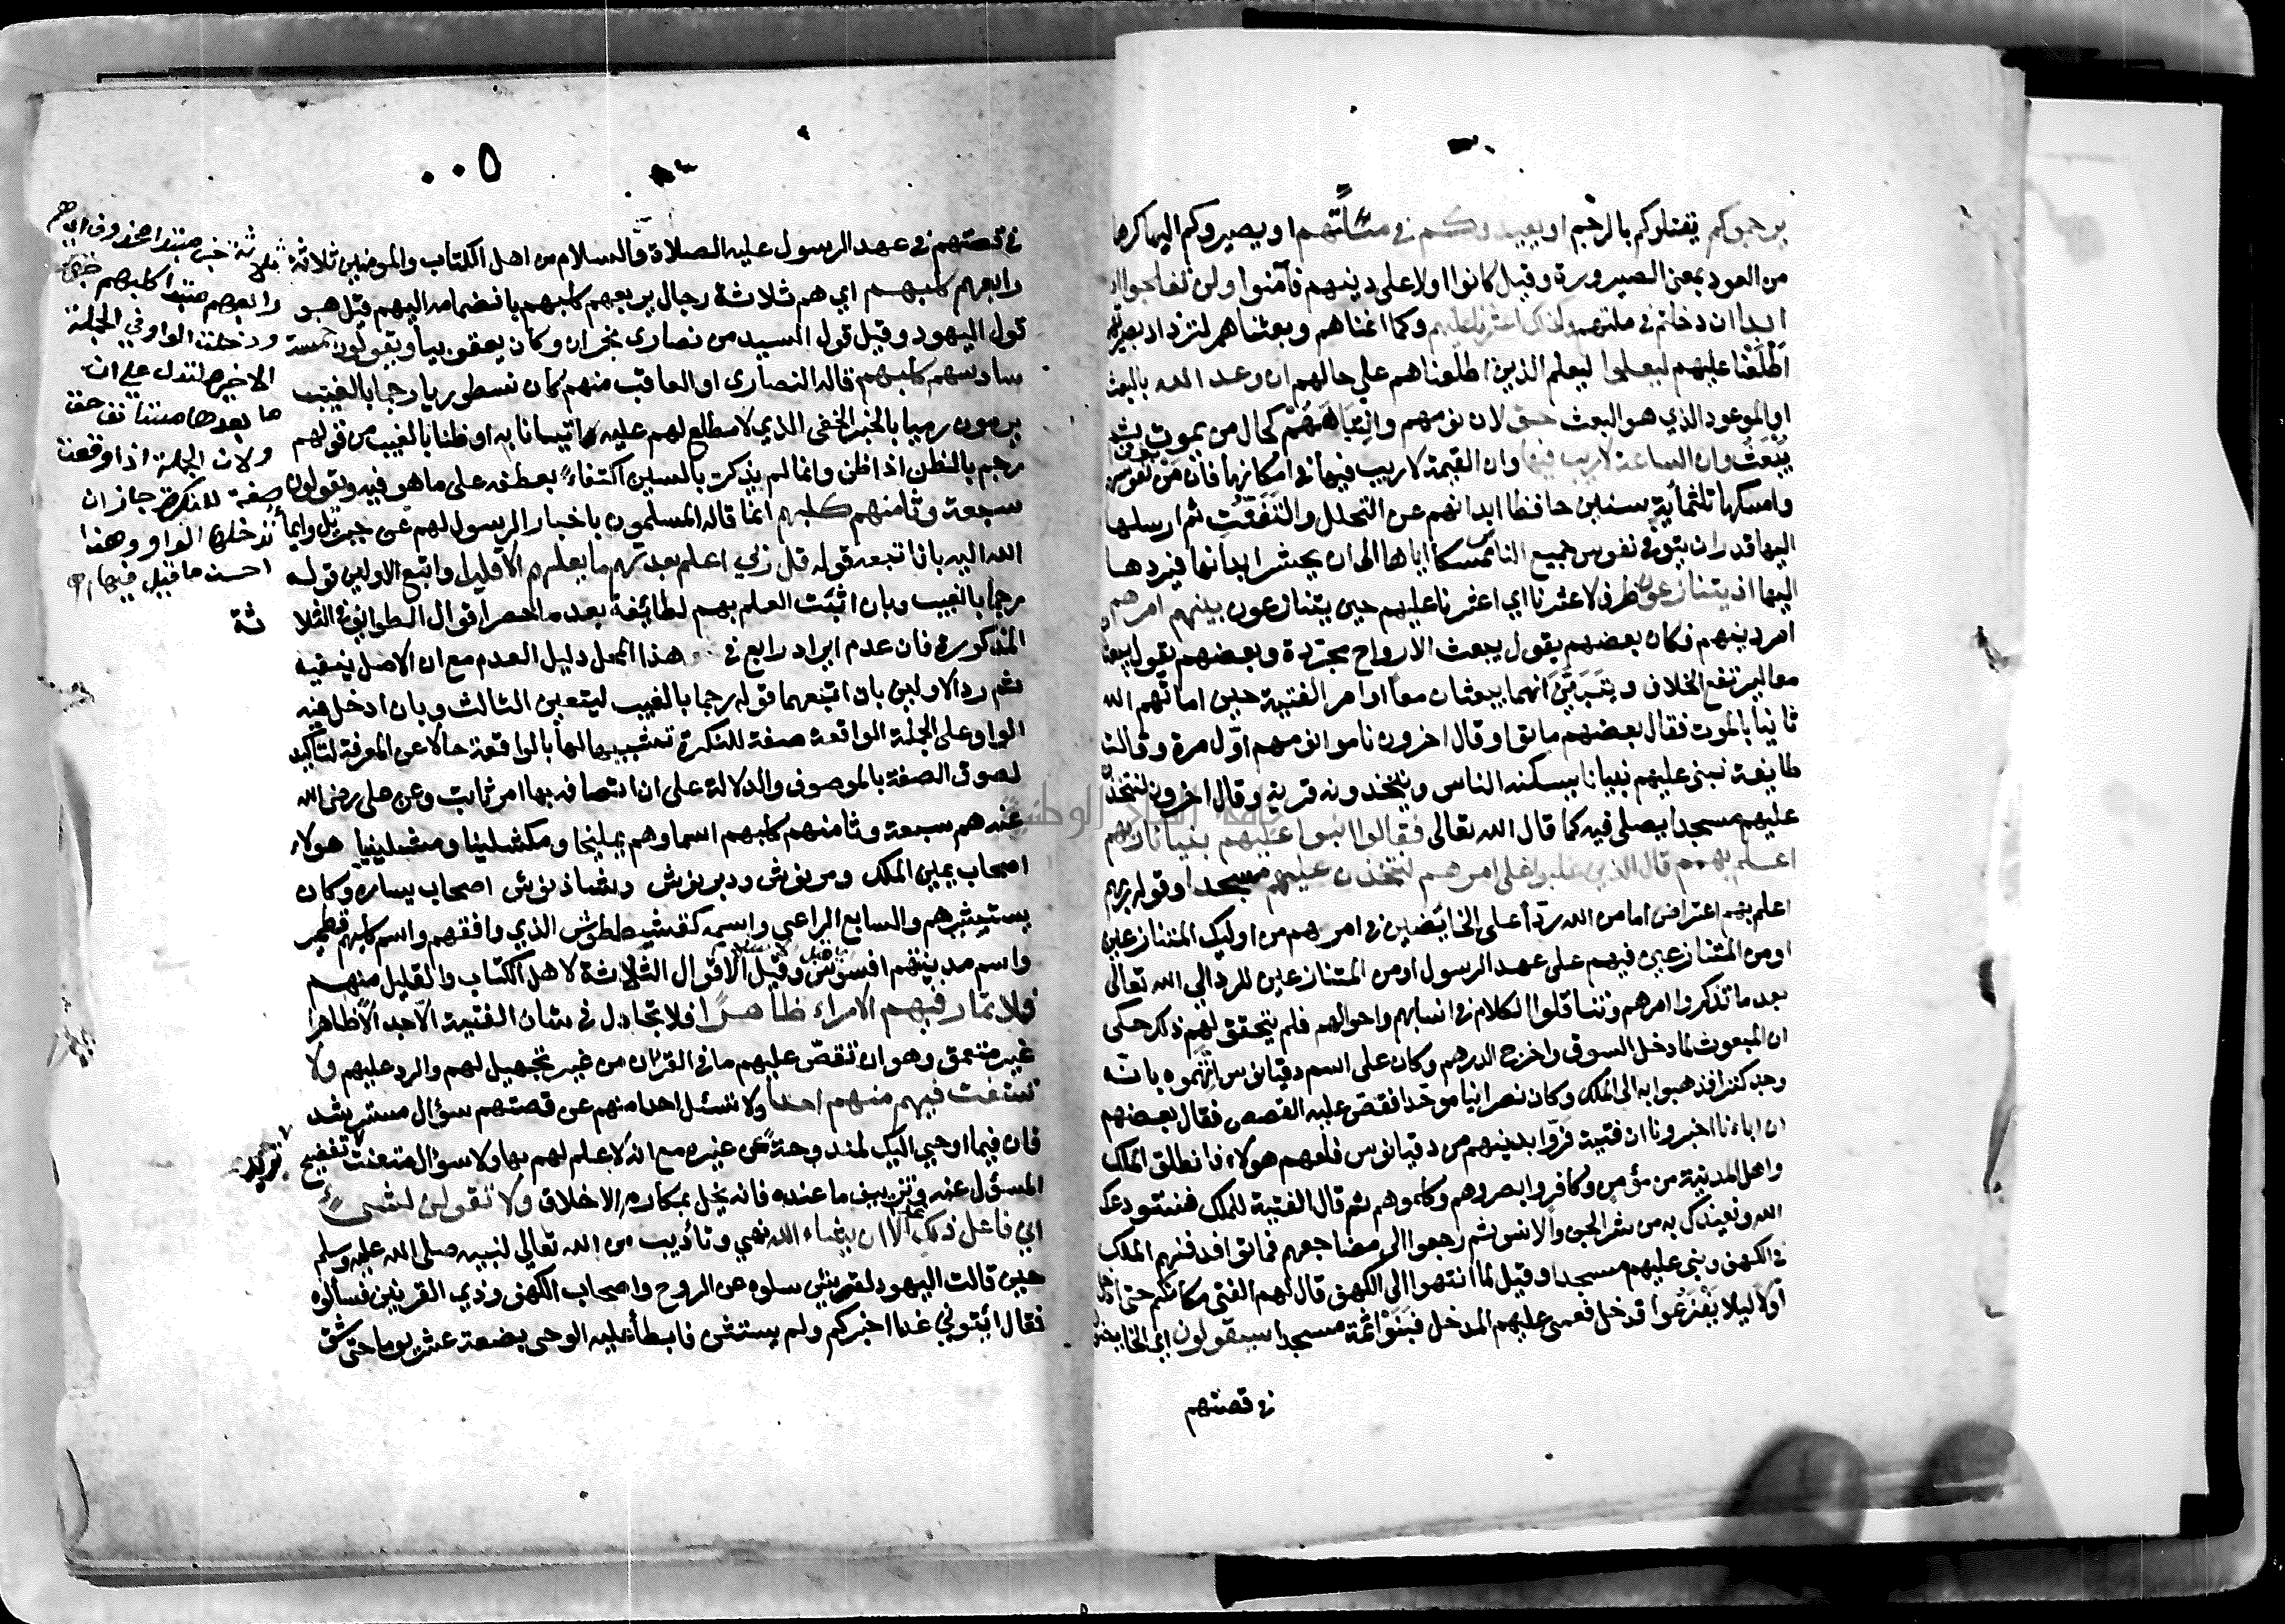 يرجموكم يقتلوكم بالرجم او يعيدوكم في ملتهم او يصيروكم اليها كرها
من العود بمعنى الصيرورة وقيل كانوا اولا على دينهم فآمنوا ولن تفلحوا اذا
ابدا ان دخلتم في ملتهم وكذلك اعثرنا عليهم وكما انمناهم وبعثناهم لتزداد بصيرتهم
اطلعنا عليهم ليعلموا ليعلم الذين اطلعناهم على حالهم ان وعد الله بالبعث
او الموعود الذي هو البعث حق لان نومهم وانتباههم كحال من يموت ثم
يبعث وان الساعة لاريب فيها وان القيمة لا ريب فيها في امكانها فان من توفى نفوسهم
وامسكها ثلثمأية سنين حافظا ابدانهم عن التحلل والتفتت ثم ارسلها
اليها قدر ان يتوفى نفوس جميع الناس ممسكا اياها الى ان يحشر ابدانها فيردها
اليها اذ يتنازعون ظرف لاعثرنا اي اعثرنا عليهم حين يتنازعون بينهم امرهم
امر دينهم فكان بعضهم يقول يبعث الارواح مجردة وبعضهم يقول يبعثان
معا ليرتفع الخلاف ويتبين انهما يبعثان معا او امر الفتية حين اماتهم الله
ثانيا بالموت فقال بعضهم ماتوا وقال اخرون ناموا نومهم اول مرة وقالت
طايفة نبني عليهم بنيانا يسكنه الناس ويتخذونه قرية وقال اخرون لنتخذن
عليهم مسجدا يصلى فيه كما قال الله تعالى فقالوا ابنوا عليهم بنيانا ربهم
اعلم بهم قال الذين غلبوا على امرهم لنتخذن عليهم مسجدا وقوله ربهم
اعلم بهم اعتراض اما من الله ردا على الخايضين في امرهم من اوليك المتنازعين
او من المتنازعين فيهم على عهد الرسول او من المتنازعين للرد الى الله تعالى
بعد ما تذكروا امرهم وتناقلوا الكلام في انسابهم واحوالهم فلم يتحقق لهم ذلك حكى
ان المبعوث لما دخل السوق واخرج الدرهم وكان على اسم دقيانوس اتهموه بانه
وجد كنزا فذهبوا به الى الملك وكان نصرانيا موحدا فقص عليه القصص فقال بعضهم
ان اباءنا اخبرونا ان فتية فروا بدينهم من دقيانوس فلعلهم هولاء فانطلق الملك
واهل المدينة من مؤمن وكافر وابصروهم وكلموهم ثم قال الفتية للملك نستودعك
الله ونعيذك به من شر الجن والانس ثم رجعوا الى مضاجعهم فماتوا فدفنهم الملك
في الكهف وبنى عليهم مسجدا وقيل لما انتهوا الى الكهف قال لهم الفتى مكانكم حتى ادخل
اولا ليلا يفزعوا فدخل فعمى عليهم المدخل فبنوا ثمة مسجدا سيقولون اي الخايضون
في قصتهم
٠٠٥
في قصتهم في عهد الرسول عليه الصلاة والسلام من اهل الكتاب والمومنين ثلاثة
رابعهم كلبهم اي هم ثلاثة رجال يربعهم كلبهم بانضمامه اليهم قيل هو
قول اليهود وقيل قول السيد من نصارى نجران وكان يعقوبيا ويقولون خمسة
سادسهم كلبهم قاله النصارى او العاقب منهم كان نسطوريا رجما بالغيب
يرمون رميا بالخبر الخفي الذي لا مطلع لهم عليه واتيانا به او ظنا بالغيب من قولهم
رجم بالظن اذا ظن وانما لم يذكر بالسين اكتفاء بعطفه على ما هو فيه ويقولون
سبعة وثامنهم كلبهم انما قاله المسلمون باخبار الرسول لهم عن جبريل وايماء
الله اليه بان اتبعه قوله قل ربي اعلم بعدتهم ما يعلمهم الا قليل واتبع الاولين قوله
رجما بالغيب وبان اثبت العلم بهم لطائفة بعد ما حصر اقوال الطوايف الثلا ثة
المذكورة فان عدم ايراد رابع في هذا المحل دليل العدم مع ان الاصل ينفيه
ثم رد الاولين بان اتبعهما قوله رجما بالغيب ليتعين الثالث وبان ادخل فيه
الواو على الجملة الواقعة صفة للنكرة تشبيها لها بالواقعة حالا عن المعرفة لتاكيد
لصوق الصفة بالموصوف والدلالة على ان اتصافه بها امر ثابت وعن على رضى الله
عنه هم سبعة وثامنهم كلبهم اسماوهم يمليخا ومكشلينا ومشلينيا هولاء
اصحاب يمين الملك ومرنوش ودبرنوش وشاذنوش اصحاب يساره وكان
يستشيرهم والسابع الراعي واسمه كفشيططوش الذي وافقهم واسم كلبهم قطمير
واسم مدينتهم افسوس وقيل الاقوال الثلاثة لاهل الكتاب والقليل منهم
فلا تمار فيهم الا مراء ظاهرا فلا تجادل في شان الفتية الا جدالا ظاهرا
غير متعمق وهو ان تقص عليهم ما في القران من غير تجهيل لهم والرد عليهم ولا
تستفت فيهم منهم احدا ولا تسئل احدا منهم عن قصتهم سؤال مسترشد
فان فيما اوحي اليك لمندوحة عن غيره مع انه لا علم لهم بها ولا سؤال متعنت تفضيح
المسؤل عنه وتزييف ما عنده فانه يخل بمكارم الاخلاق ولا تقولن لشيء
اني فاعل ذلك غدا الا ان يشاء الله نهي وتأديب من الله تعالي لنبيه صلى الله عليه وسلم
حين قالت اليهود لقريش سلوه عن الروح واصحاب الكهف وذي القرنين فسألوه
فقال ائتوني غدا اخبركم ولم يستثن فابطأ عليه الوحى بضعة عشر يوما حتى شق
ثلاثة خبر مبتدا محذوف اي هم
رابعهم مبتدا كلبهم خبره
ودخلت الواو في الجملة
الاخيرة لتدل على ان
ما بعدها مستانف حق
ولان الجملة اذا وقعت
صفة للنكرة جاز ان
تدخلها الواو وهذا
احسن ما قيل فيها
تريد